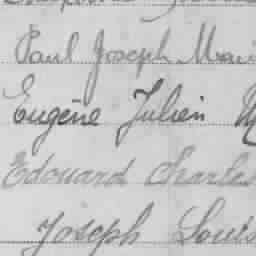 Paul Joseph
Eugène Julien
Edouard Charles
Joseph Louis